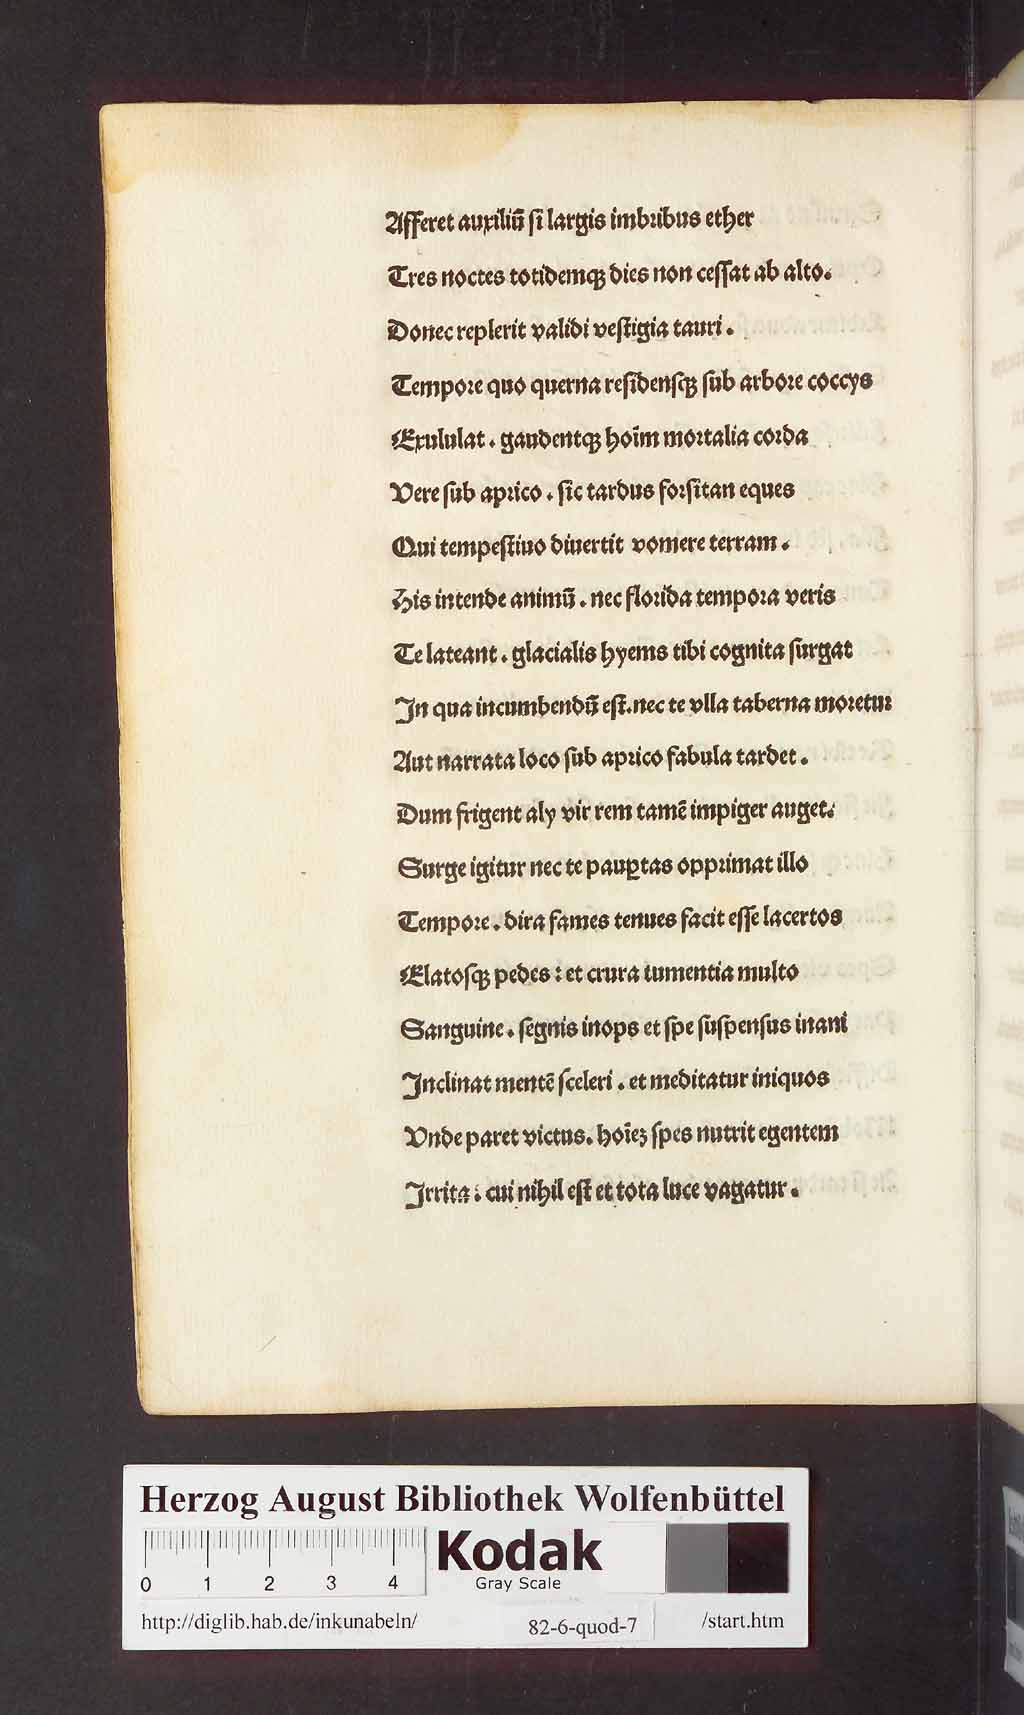 Afferet auxiliū si largis imbribus ether
Tres noctes totidemqꝫ dies non cessat ab alto.
Donec replerit validi vestigia tauri .
Tempore quo querna residensqꝫ sub arbore coccys
Exululat . gaudentqꝫ hoīm mortalia corda
Vere sub aprico . sic tardus forsitan eques
Qui tempestiuo diuertit vomere terram .
His intende animū . nec florida tempora veris
Te lateant . glacialis hyems tibi cognita surgat
In qua incumbendū est.nec te vlla taberna moretur
Aut narrata loco sub aprico fabula tardet .
Dum frigent aly vir rem tamē impiger auget:
Surge igitur nec te pauꝑtas opprimat illo
Tempore . dira fames tenues facit esse lacertos
Elatosqꝫ pedes : et crura tumentia multo
Sanguine . segnis inops et spe suspensus inani
Inclinat mentē sceleri . et meditatur iniquos
Vnde paret victus. hoīeꝫ spes nutrit egentem
Irrita : cui nihil est et tota luce vagatur .
Herzog August Bibliothek Wolfenbüttel
0 1 2 3 4
Kodak
Gray Scale
http://diglib.hab.de/inkunabeln/ 82-6-quod-7 /start.htm